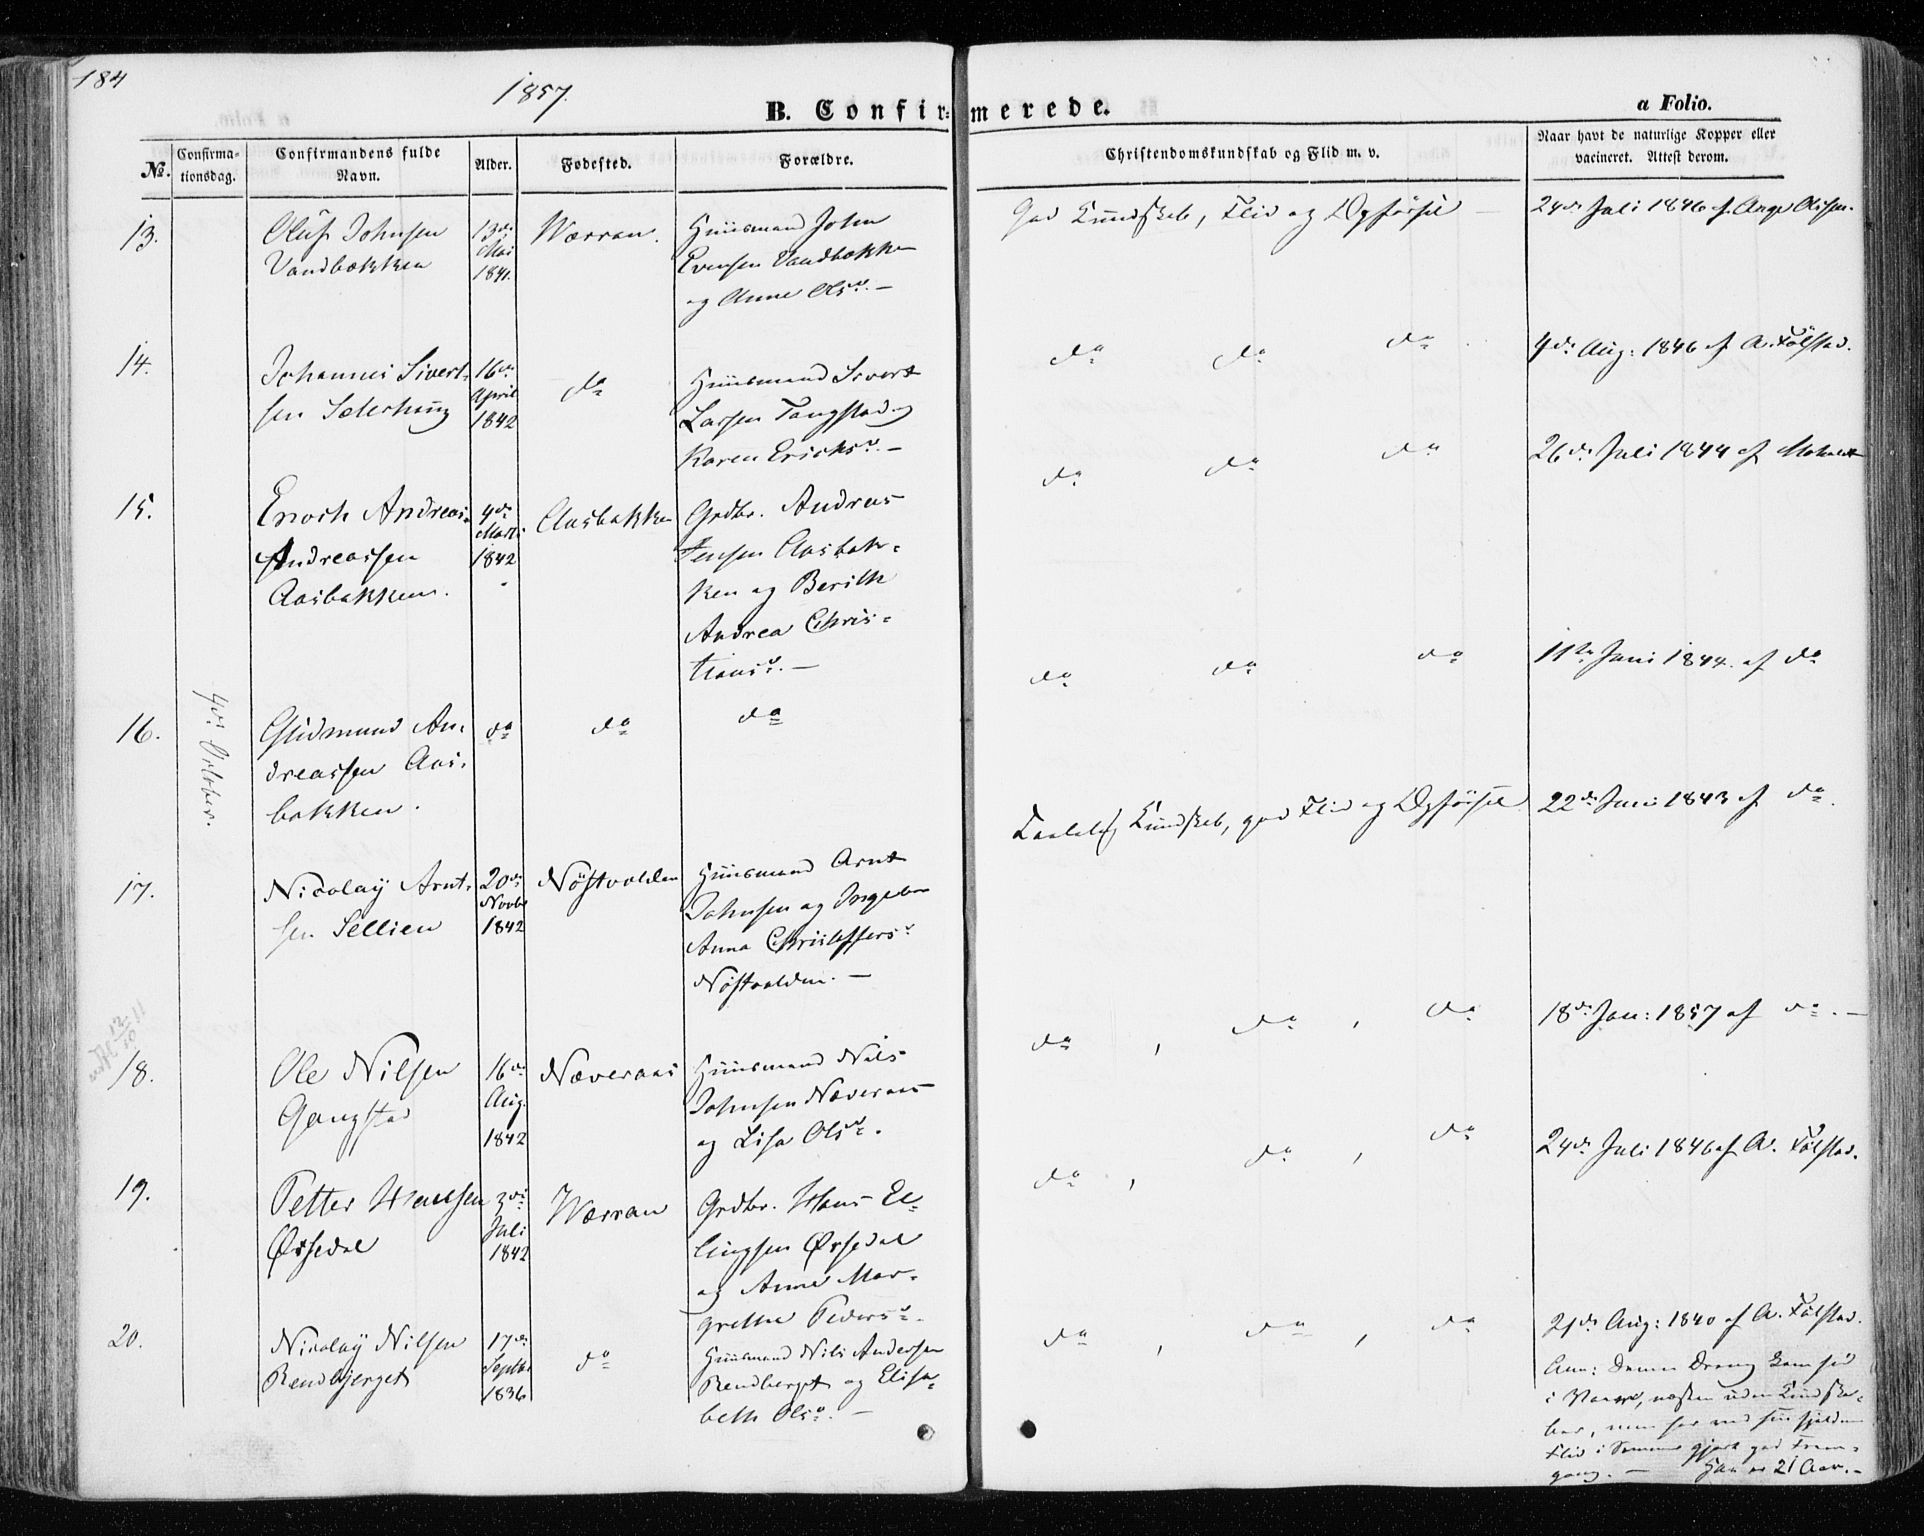 184
1857.
B. Confir-
merede.
a Folio.
No.
Confirma-
tionsdag.
Confirmandens fulde
Navn.
Alder.
Fødested.
Forældre.
Christendomskundskab og Flid m. v.
Naar havt de naturlige Kopper eller
vacineret. Attest derom.
4de October.
13.
Oluf Johnsen
Vandbækken
13de
Mai
1841.
Wærran.
Huusmand John
Evensen Vandbækken
og Anne Olsd. —
God Kundskab, Flid og Opførsel —
24de Juli 1846 af Aage Olissen.
14.
Johannes Sivert-
sen Seterhaug
16de
April
1842
do
Huusmand Sivert
Larsen Tangstad og
Karen Ericksd. —
do do do
4de Aug: 1846 af A. Følstad.
15.
Enoch Andreas
Andreassen
Aasbakken.
4de
Marts
1842
Aasbakken
Grdbr. Andreas
Jensen Aasbak-
ken og Berith
Andrea Chris-
tiansd. —
do do do
26de Juli 1844 af
16.
Gudmund An-
dreassen Aas-
bakken.
do
do
do
do do do
11te Juni 1844. af do
17.
Nicolay Arnt-
sen Sellien
20de
Novbr
1842
Nøstvolden
Huusmand Arnt
Johnsen og Ingebor
Anna Christoffersd.
Nøstvolden. —
Taalelig Kundskab, god Flid og Opførsel
22de Juni 1843 af do.
12/10 11
18.
Ole Nilsen
Gangstad
16de
Aug.
1842
Næveraas
Huusmand Nils
Johnsen Næveraas
og Lisa Olsd.
do , do , do
18de Jan: 1857 af do. —
19.
Petter Hansen
Ørsedal
3de
Juli
1842
Wærran
Grdbr. Hans El-
lingsen Ørsedal
og Anne Mar-
grethe Pedersd.
do , do , do
24de Juli 1846 af A. Følstad.
20.
Nicolay Nilsen
Rendbjerget
17de
Septbr
1836
do
Huusmand Nils Andersen
Rendberget og Elisa-
beth Olsd. —
do , do , do
21de Aug: 1840 af A. Følstad.
Anm: Denne Dreng kom hid
i Vaares, næsten uden Kundska-
ber, men har ved sin sjeldne
Flid i Sommer gjort god Frem-
gang. — Han er 21 Aar. —